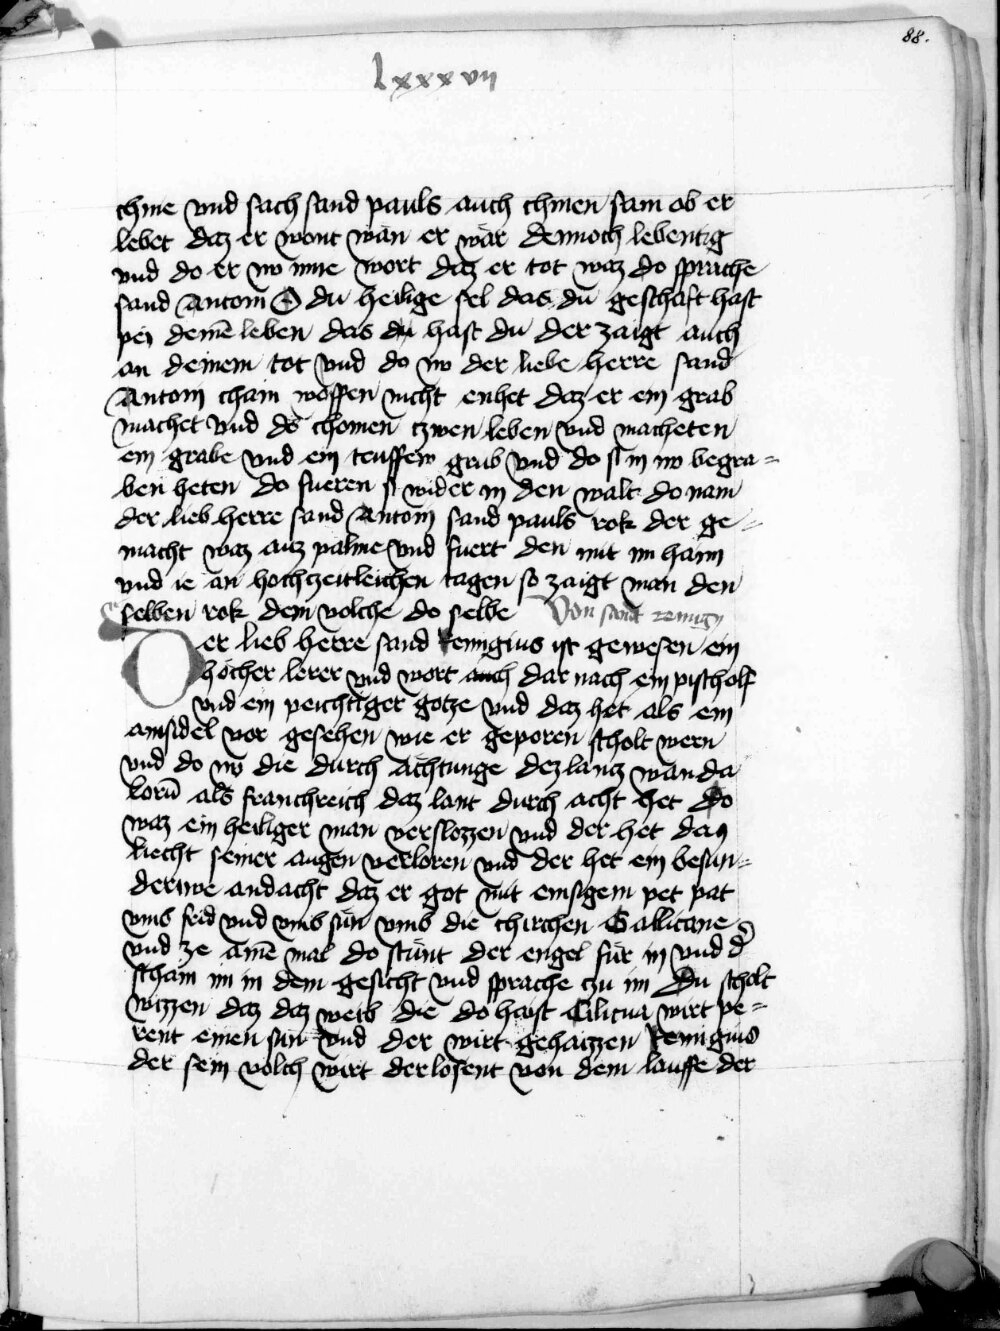 88.
lxxxvii
chnie vnd sach sand pauls auch chnien sam ob er
lebet daz er wont wan er wär dennoch lebentig
vnd do er nv inne wort daz er tot waz do sprache
sand Antoni O du heilige sel das du geschaft hast
pey deinē leben das du hast du der zaigt auch
an deinem tot vnd do nv der liebe herre sand
Antoni chain woffen nicht enhet daz er ein grab
machet vnd do chomen czwen leben vnd macheten
ein grabe vnd ein teuffew grub vnd do si in nv begra-
ben heten do fueren si wider in den walt do nam
der lieb herre sand Antoni sand pauls rok der ge-
macht waz auz palme vnd fuert den mit im haim
vnd ie an hochzeitleichen tagen so zaigt man den
selben rok dem volche do selbe Von sant remigy
Der lieb herre sand Remigius ist gewesen ein
höcher lerer vnd wort auch dar nach ein pischolf
vnd ein peichtiger gotze vnd daz het als ein
ainsidel vor gesehen wie er geporen scholt wern
vnd do nv die durch ächtunge dez lantz wanda
lorū als franchreich daz lant durch acht het Do
waz ein heiliger man verslozzen vnd der het daz
liecht seiner augen verloren vnd der het ein besun-
derwe andacht daz er got mit emsigem pet pat
vmb frid vnd vmb sün vmb die chirchen Gallicane
vnd ze ainē mal do stünt der engel für in vnd d̄
schain im in dem gesicht vnd sprache czu im Du scholt
wizzen daz daz weib die do haist Cilicna wirt pe-
rent einen sun vnd der wirt gehaizzen Remigius
der sein volch wirt derlosent von dem lauffe der